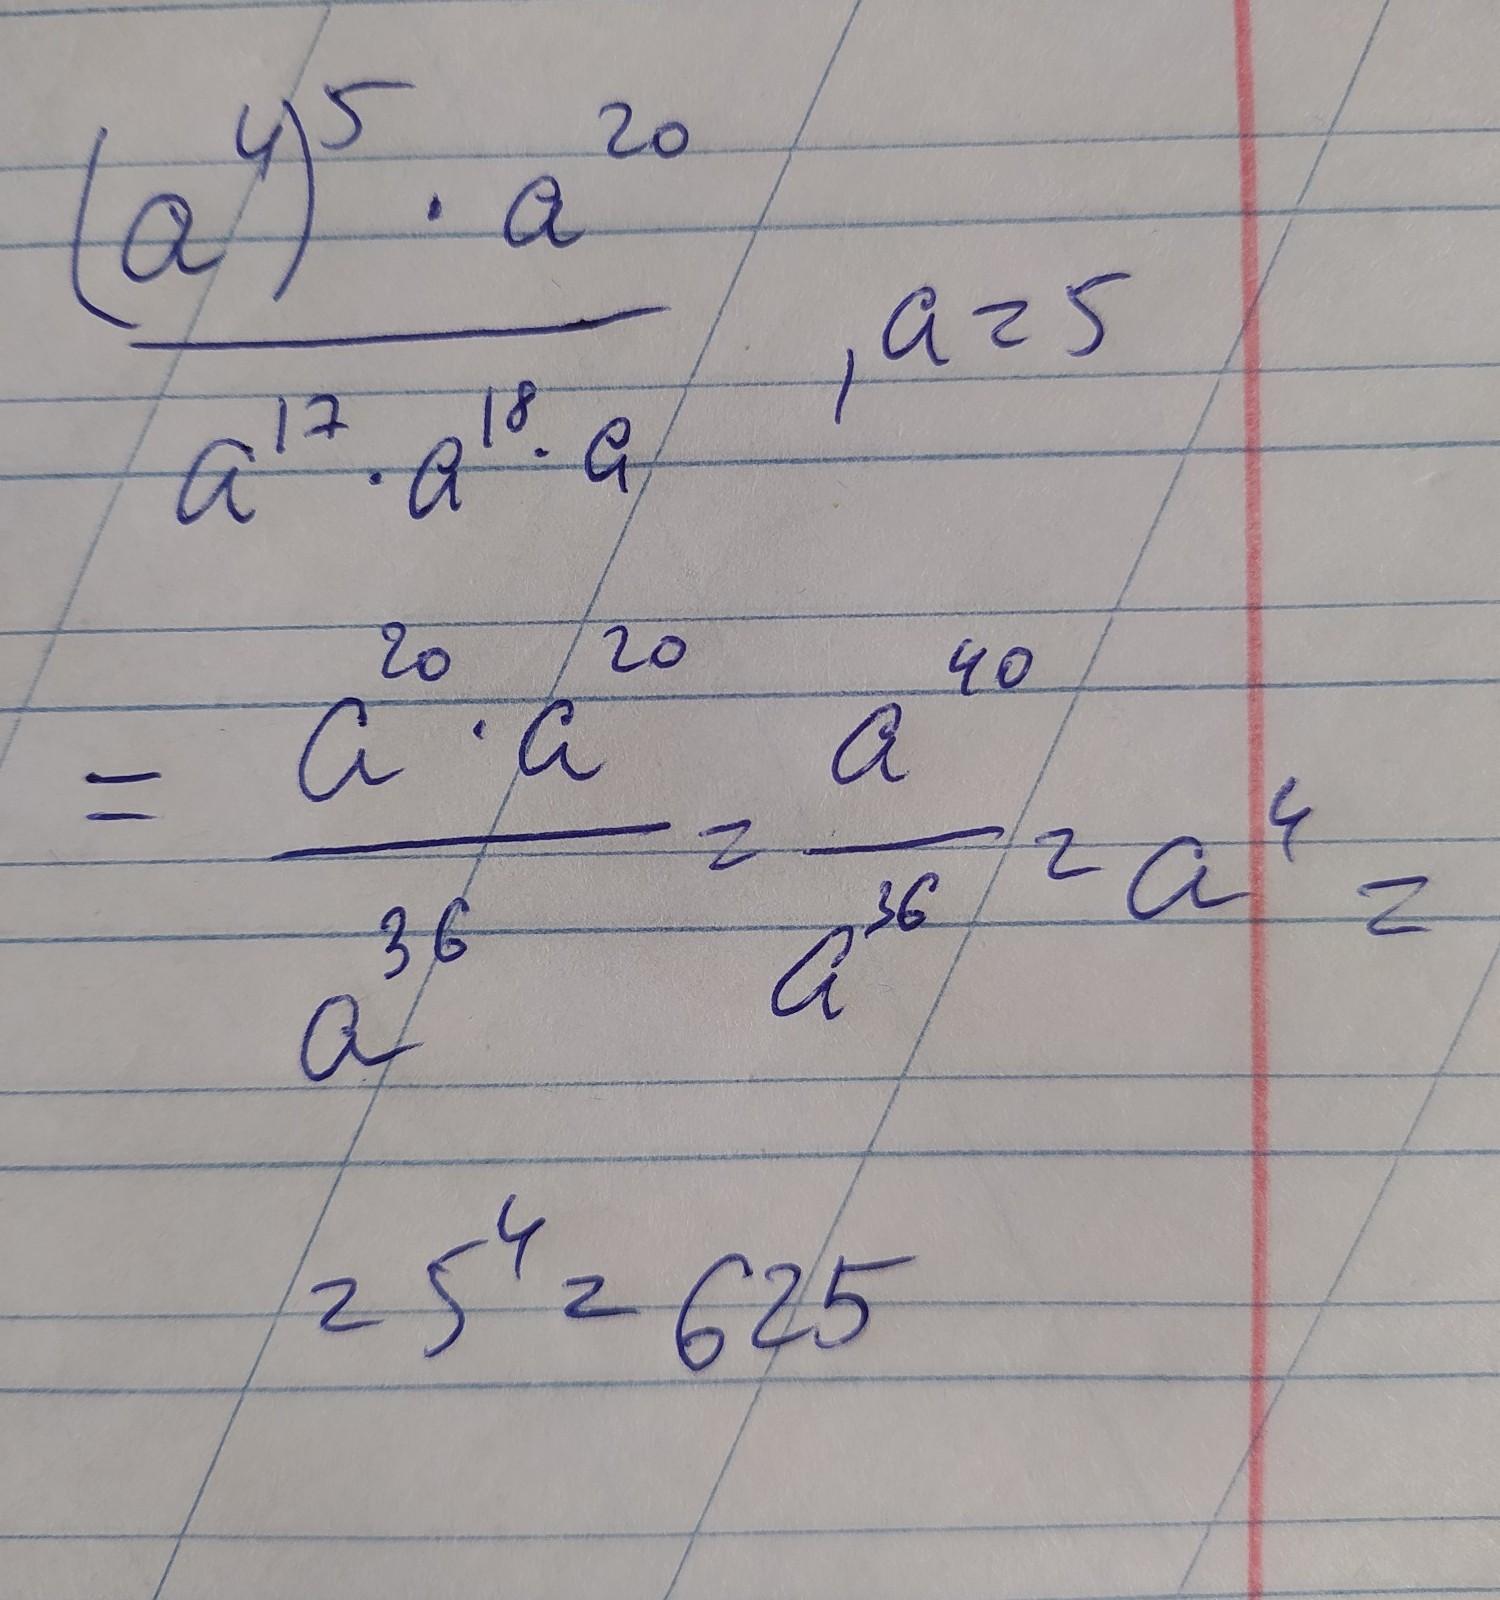 (a⁴)⁵ · a²⁰
a¹⁷ · a¹⁸ · a
, a = 5
= a²⁰ · a²⁰ / a³⁶ = a⁴⁰ / a³⁶ = a⁴ =
= 5⁴ = 625